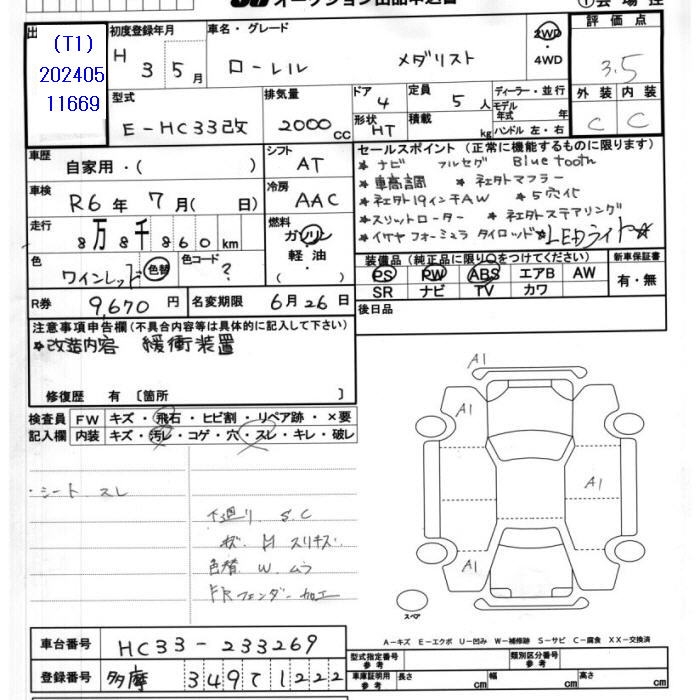 オークション出品申込書
①会場控
出 (T1)
202405
11669
初度登録年月 車名・グレード
H 3 5月 ローレル メダリスト
2WD・4WD
評価点
3.5
型式 排気量 ドア 定員 ディーラー・並行
E-HC33改 2000cc 4 5人
モデル年式 年
形状 積載 ハンドル 左・右
HT kg
外装 内装
C C
車歴 自家用・( ) シフト AT
車検 R6年 7月( 日) 冷房 AAC
走行 8万8千860km 燃料 ガソリン 軽油・( )
色 ワインレッド 色替 色コード ?
R券 9,670円 名変期限 6月26日
セールスポイント(正常に機能するものに限ります)
★ナビ フルセグ Bluetooth
★車高調 ★社外マフラー
★社外19インチAW ★5穴化
★スリットローター ★社外ステアリング
★イケヤフォーミュラ タイロッド ★LEDライト★
装備品(純正品に限り○をつけてください) 新車保証書
PS PW ABS エアB AW 有・無
SR ナビ TV カワ
後日品
注意事項申告欄(不具合内容等は具体的に記入して下さい)
★改造内容 緩衝装置
修復歴 有〔箇所 〕
検査員 FW キズ・飛石・ヒビ割・リペア跡・×要
記入欄 内装 キズ・汚レ・コゲ・穴・スレ・キレ・破レ
・シート スレ
下廻り S.C
H スリキズ
色替 W. ムラ
FRフェンダー加工
A1
A1
A1
A1
スペア
A-キズ E-エクボ U-凹み W-補修跡 S-サビ C-腐食 XX-交換済
車台番号 HC33-233269
登録番号 多摩 349 て 1222
型式指定番号 参考 類別区分番号 参考
車庫証明用 参考 長さ cm 幅 cm 高さ cm